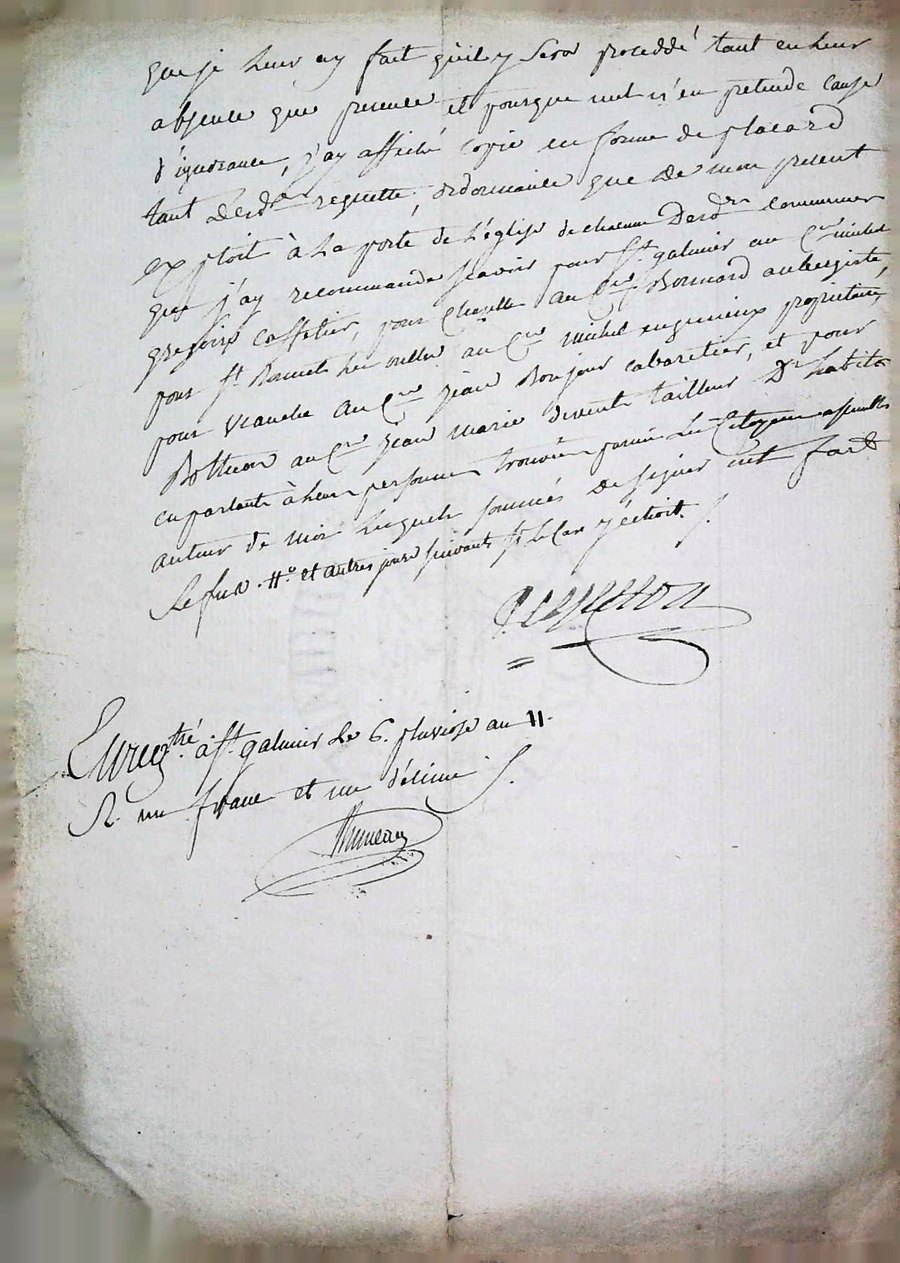 que je leur ay fait qu'il y sera proceddé tant en leur
absence que presence et pourque nul n'en pretende cause
d'ignorance, j'ay affiché copie en forme de placard
tant desd. requette, ordonnance que de mon present
exploit à la porte de l'église de chacune desd. communes
que j'ay recommandé scavoir pour St galmier au Cen michel
gregoire caffetier, pour Chazelle au Cen Bonnard aubergiste,
pour St Bonnet les oulles au Cen michel enjumieux proprietaire
pour veauche au Cen jean Bonjour cabaretier, et pour
Bottheon au Cen jean marie tailleur Dt habitt
en parlant à leur personnes trouvées parmi les Citoyens assemblés
autour de moi lesquels sommés de signer ont fait
Le fur. 11e et autres jours suivants sy le cas y échoit ./.
Enregtré à St galmier le 6. pluviose an 11.
R. un franc et un décime ./.